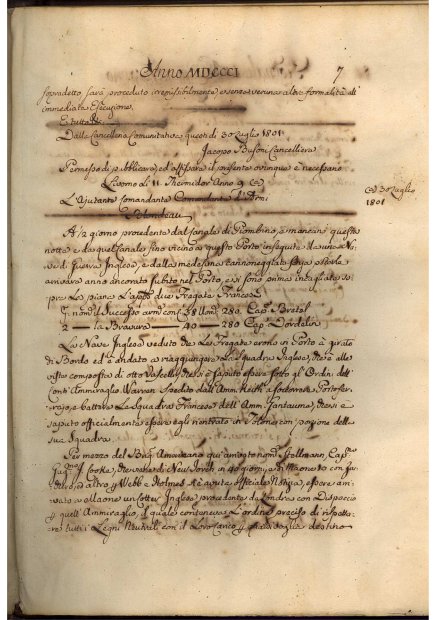 Anno MDCCCI 7
sopradetto sarà proceduto irremisibilmente, e senza veruna altra formalità all'
immediata Esecuzione.
E tutto &c.
Dalla Cancelleria Comunitativa questo dì 30 Luglio 1801.
Jacopo Busoni Cancelliere
Permesso di pubblicare, ed affissare il presente ovunque è necessario
Livorno li 11 Thermidor Anno 9
L'Ajutante Comandante Comandante d'Armi
30 Luglio
1801
A 1/2 giorno procedente dal Canale di Piombino, e mancano questa
notte e da quel Canale fino vicino a questo Porto inseguite da una Na-
ve di Guerra Inglese, e dalla medesima cannoneggiate
ancorate subito nel Porto, e si sono prima
pre la piana Lajatto due Fregate Francesi
nom. il Successo arm. con 38 Cann. 280 Cap. Bretel
2 — la Bravura — 40 — 280 Cap. Dordelin
La Nave Inglese veduto che le Fregate erano in Porto à girato
di Bordo ed è andato a riaggiungere la Squadra Inglese, che è alla
vista composta di otto Vascelli, che si è saputo essere sotto gl'Ordini del
Cont' Ammiraglio Warren spedito dall'Amm. Keith a Portofer-
rajo e battere la Squadra Francese dell'Amm. Gantaume, che si è
saputo officialmente essere egli rientrato in Tolone con porzione della
sua Squadra.
Per mezzo del Brig. Americano qui arrivato nom.
Cooke, che viene di New Jorck in 40 giorni, e di Maone
ed altro Webb e Holmes si è avuta officiale Notizia, essere arri-
vato a Maone un Cutter Inglese procedente da Londra con Dispaccio
quell'Ammiraglio, il quale conteneva l'ordine preciso di rispetta-
re tutti i Legni Neutrali con il loro carico qualsivoglia destino